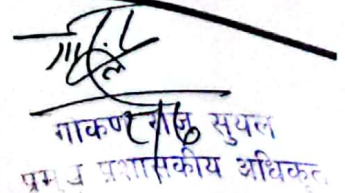 गोकर्ण राज सुयल
प्रमुख प्रशासकीय अधिकृत